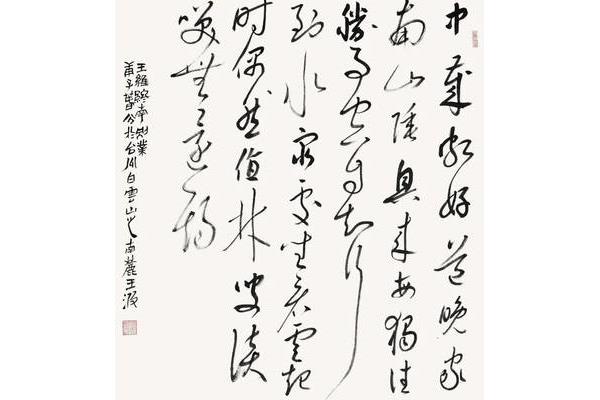 中歲頗好道晚家
南山陲興來每獨往
勝事空自知行
到水窮處坐看雲起
時偶然值林叟談
笑無還期
王維終南別業
庚子春分於台州白雲山之南麓王